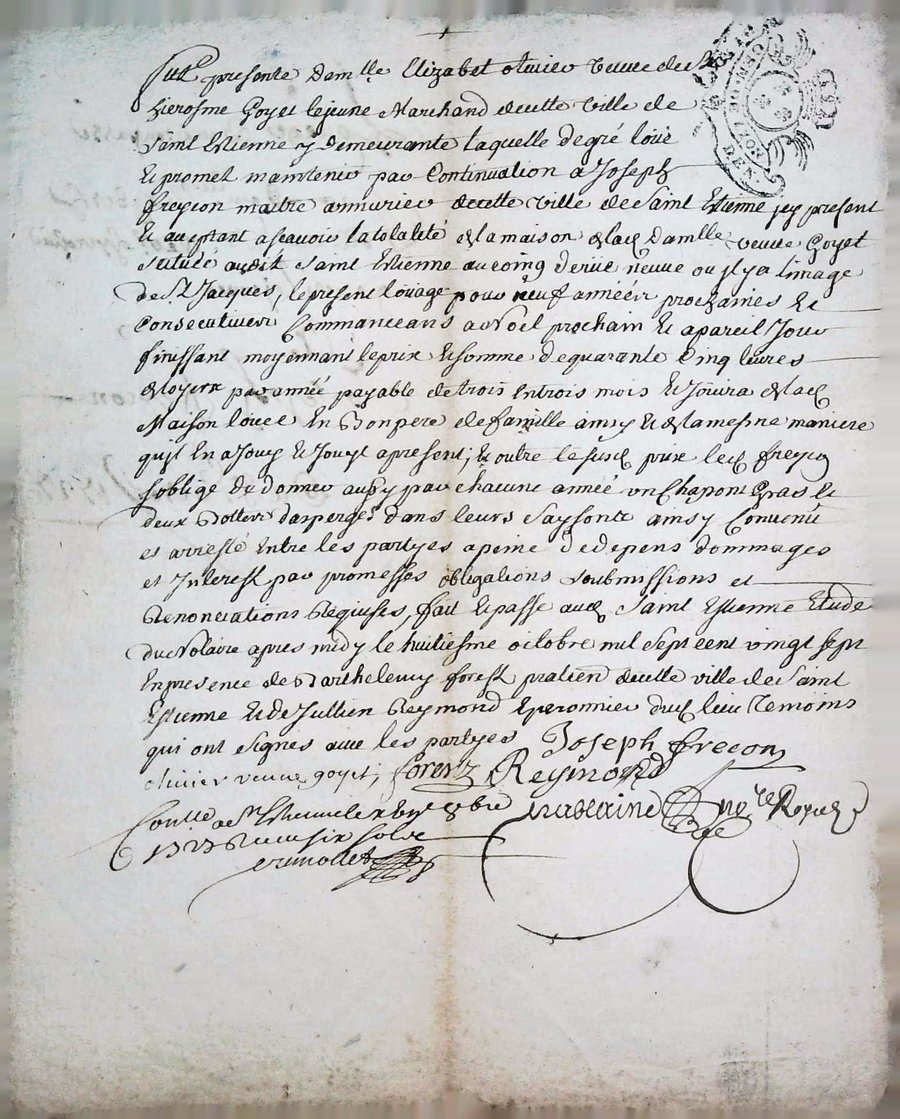 fut presente Damlle Elizabet olivier veuve de Sr
hierosme Goyet lejeune Marchand decette ville de
saint Etienne y demeurante laquelle degré loüe
Et promet maintenir par Continuation a Joseph
freycon maitre armurier decette ville de Saint Etienne jcy present
Et acceptant ascavoir latotaleté delamaison delad Damlle veuve Goyet
scituée audit Saint Etienne aucoing derüe neuve ou jl y a limage
de St Jacques, lepresent loüage pour neuf années prochaines Et
Consecutives Commanceans a noel prochain Et apareil Jour
finissant moyennant leprix Et somme dequarante Cinq livres
deloyer par année payable detrois entrois mois Et Joüira delad
Maison loüee En bonpere defamille ainsy Et delamesme maniere
quil En a Jouy Et Jouyt apresent; Et outre lesusd prix led freycon
soblige de donner aussy par chacune année un Chapont Gras Et
deux bottes dasperges dans leurs saysons ainsy Convenu
et arresté Entre les partyes apeine de depens dommages
et Interest par promesses obligations soubmissions et
Renonciations Requises, fait Et passé aud Saint Estienne Etude
du Notaire apres midy le huitiesme octobre mil sept cent vingt sept
En presence de Barthelemy forest pratien decette ville de Saint
Estienne Et de Jullien Reymond Eperonnier dud lieu Temoins
qui ont signes avec les partyes Joseph frecon
olivier veuve goyet; forest Reymond
Controllé a St Etienne le 8bre
1727 Reçu six sols
no.re Royal